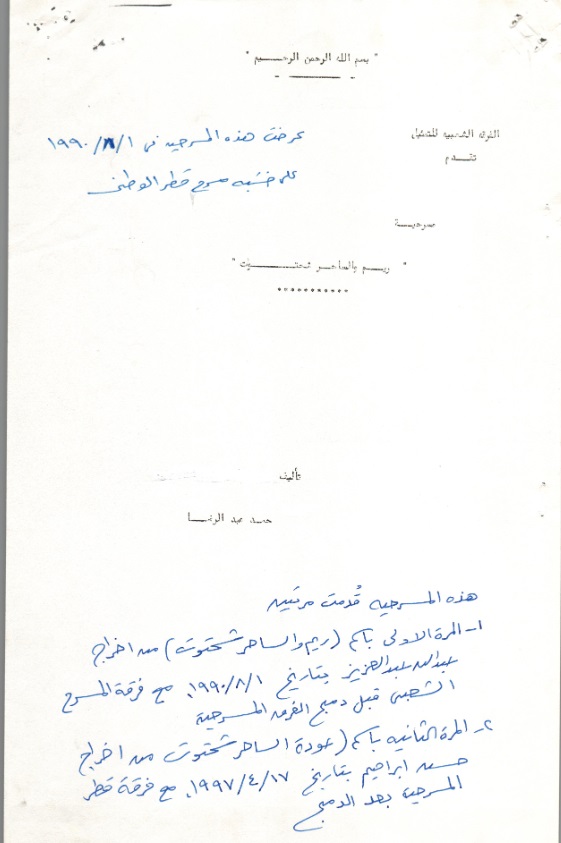 " بسم الله الرحمن الرحيم "
الفرقه الشعبيه للتمثيل
تقدم
عرضت هذه المسرحيه في ١/٨/١٩٩٠
على خشبه مسرح قطر الوطني
مسرحية
" ريم والساحر شحتوت "
تأليف
حمد عبد الرضا
هذه المسرحيه قُدمت مرتين
١- المرة الاولى باسم (ريم والساحر شحتوت) من اخراج
عبدالله عبدالعزيز بتاريخ ١/٨/١٩٩٠. مع فرقة المسرح
الشعبي قبل دمج الفرق المسرحية
٢- المرة الثانيه باسم (عودة الساحر شحتوت من اخراج
حسن ابراهيم بتاريخ ١٧/٤/١٩٩٧. مع فرقة قطر
المسرحية بعد الدمج